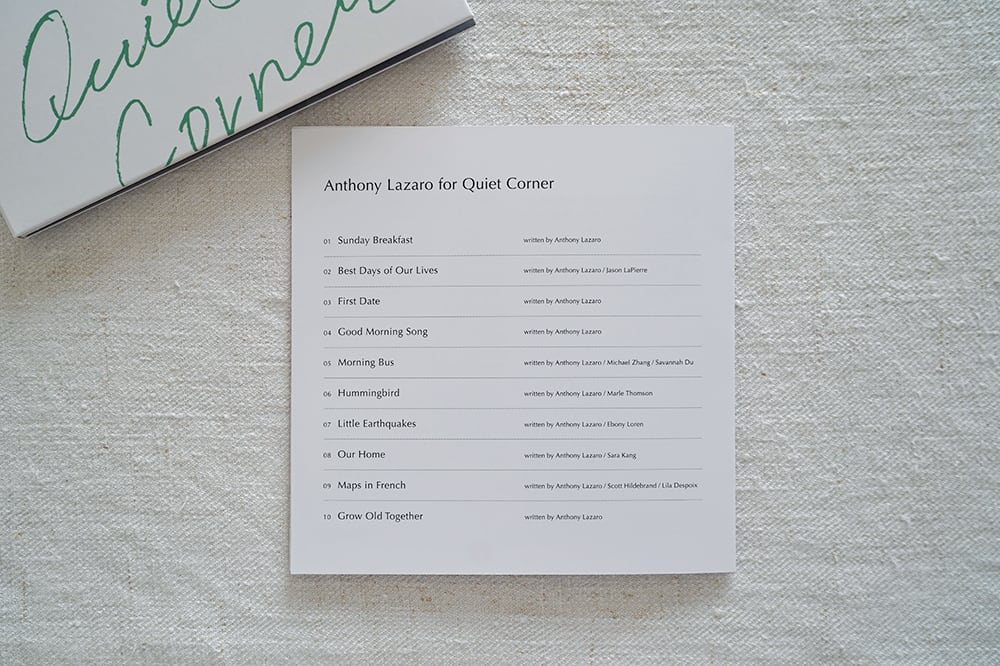 Quiet
Corner
Anthony Lazaro for Quiet Corner
01 Sunday Breakfast written by Anthony Lazaro
02 Best Days of Our Lives written by Anthony Lazaro / Jason LaPierre
03 First Date written by Anthony Lazaro
04 Good Morning Song written by Anthony Lazaro
05 Morning Bus written by Anthony Lazaro / Michael Zhang / Savannah Du
06 Hummingbird written by Anthony Lazaro / Marle Thomson
07 Little Earthquakes written by Anthony Lazaro / Ebony Loren
08 Our Home written by Anthony Lazaro / Sara Kang
09 Maps in French written by Anthony Lazaro / Scott Hildebrand / Lila Despoix
10 Grow Old Together written by Anthony Lazaro